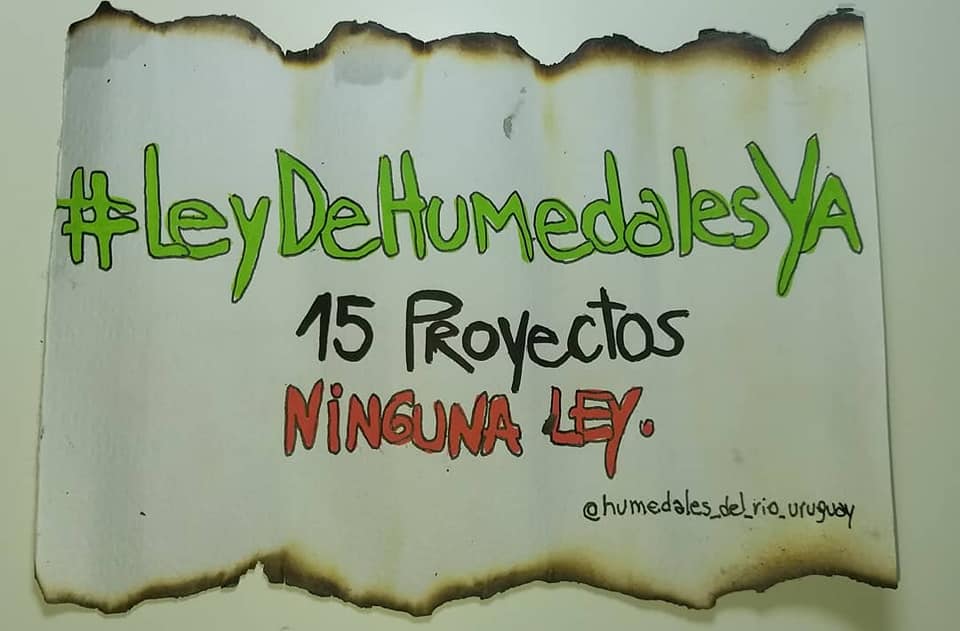 #LeyDeHumedalesYA
15 Proyectos
NINGUNA LEY.
@humedales_del_rio_uruguay